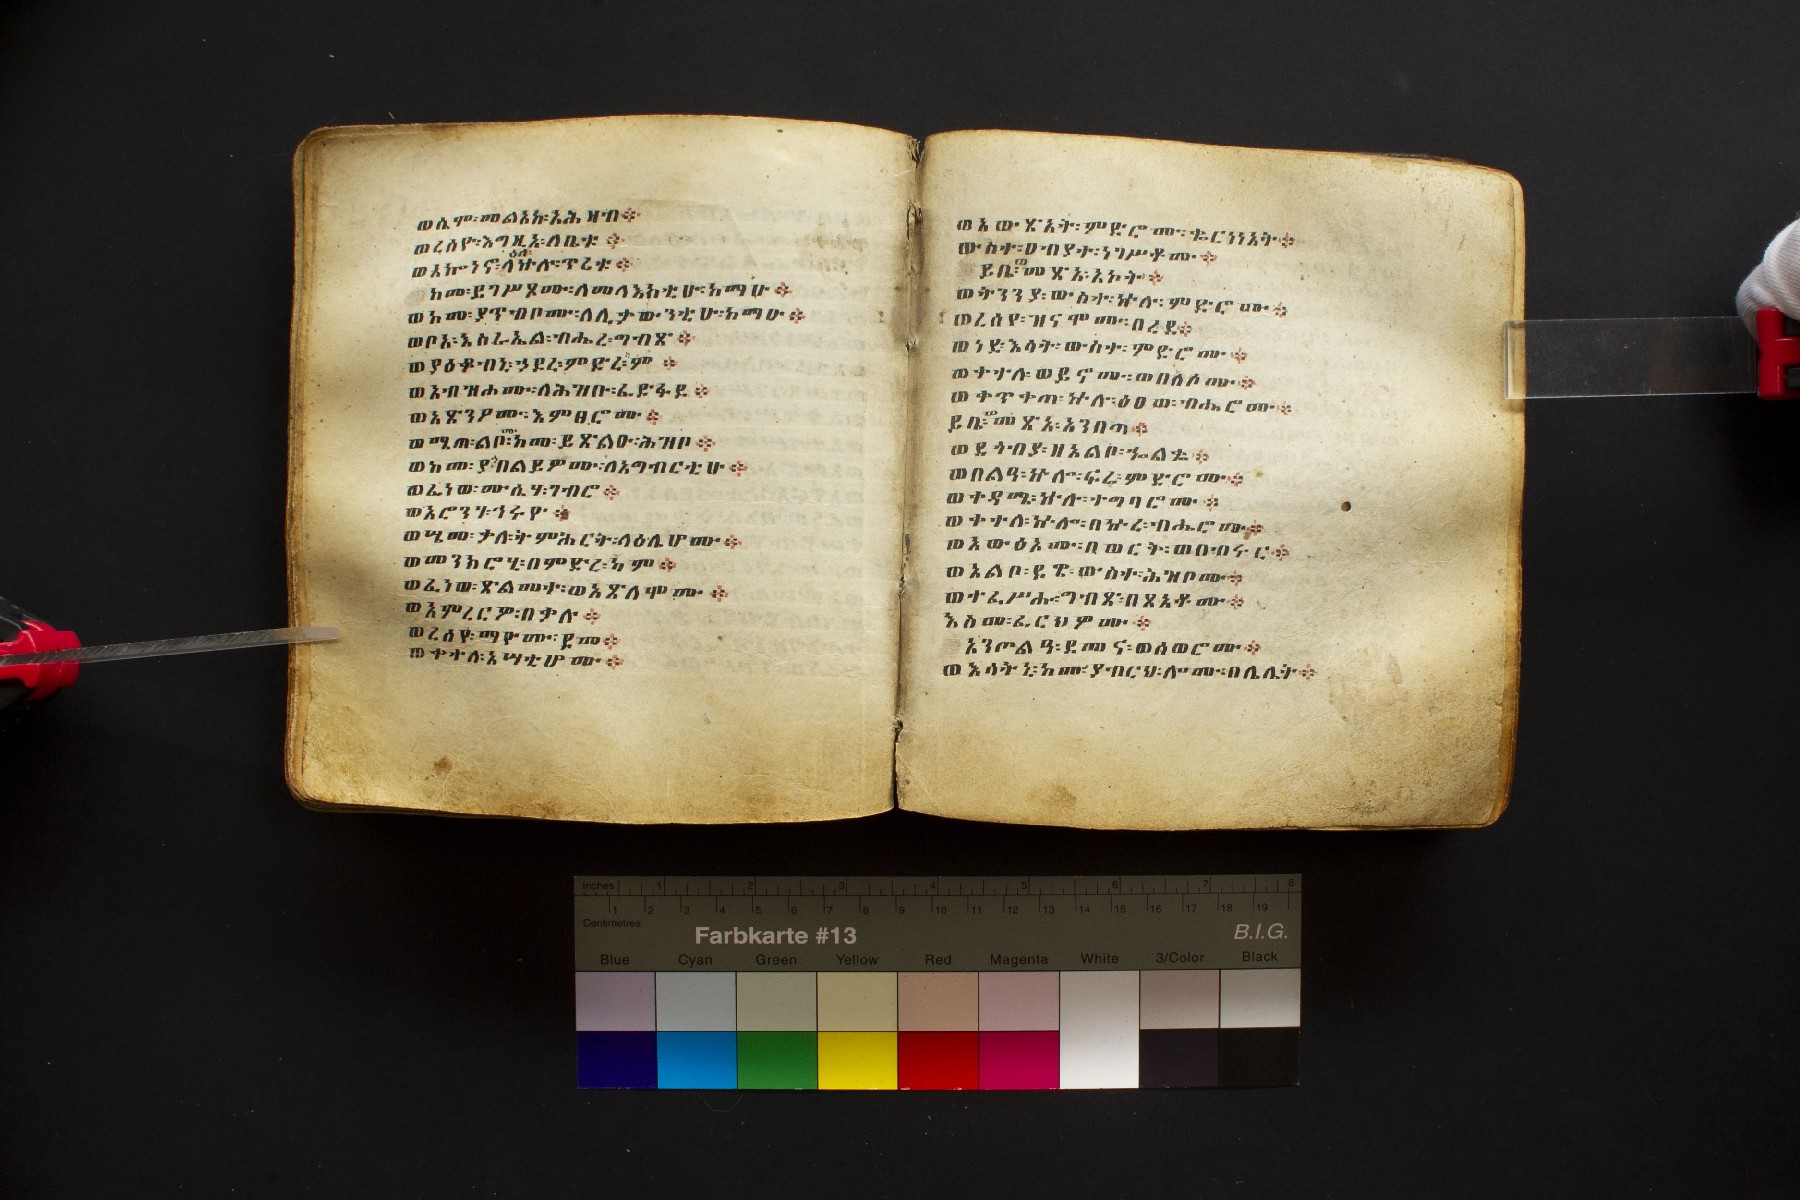 ወሤሞ፡መልአከ፡አሕዛብ፨
ወረሰዮ፡እግዚአ፡ለቤቱ፨
ዕለ
ወአኰነኖ፡ላዕለ፡ጥሪቱ፨
ከመ፡ይገሥጾሙ፡ለመላእክቲሁ፡ከማሁ፨
ወከመ፡ያጥብቦሙ፡ለሊቃውንቲሁ፡ከማሁ፨
ወቦአ፡እስራኤል፡ብሔረ፡ግብጽ፨
ወያዕቆብኒ፡ኃደረ፡ምድረ፡ም፨
ወአብዝሖሙ፡ለሕዝቡ፡ፈድፋደ፨
ወአጽንዖሙ፡እምፀሮሙ፨
ወሜጠ፡ልቦሙ፡ከመ፡ይጽልዑ፡ሕዝቦ፨
ወከመ፡ያሕበልይዎሙ፡ለአግብርቲሁ፨
ወፈነወ፡ሙሴሃ፡ገብሮ፨
ወአሮንሃ፡ኅሩየ፨
ወሤመ፡ቃለ፡ትምሕርት፡ላዕሌሆሙ፨
ወመንክሮሂ፡በምድረ፡ካም፨
ወፈነወ፡ጽልመተ፡ወአጽለሞሙ፨
ወአምረርዎ፡በቃሉ፨
ወረሰየ፡ማዮሙ፡ደመ፨
ወቀተለ፡አሣቲሆሙ፨
ወአውፅአት፡ምድሮሙ፡ቈርነነአት፨
ውስተ፡ዐብያተ፡ነገሥቶሙ፨
ይቤ፡ወመጽአ፡አኮት፨
ወትንንያ፡ውስተ፡ኵሉ፡ምድሮሙ፨
ወረሰየ፡ዝናሞሙ፡በረደ፨
ወነደ፡እሳት፡ውስተ፡ምድሮሙ፨
ወቀተለ፡ወይኖሙ፡ወበለሶሙ፨
ወቀጥቀጠ፡ኵሉ፡ዕፀወ፡ብሔሮሙ፨
ይቤ፡ወመጽአ፡አንበጣ፨
ወደጎብያ፡ዘአልቦ፡ኈልቈ፨
ወበልዓ፡ኵሎ፡ፍሬ፡ምድሮሙ፨
ወተዳሜ፡ኵሉ፡ተግባሮሙ፨
ወቀተለ፡ኵሎ፡በኵረ፡ብሔሮሙ፨
ወአውፅአሙ፡በወርቅ፡ወበብሩር፨
ወአልቦ፡ደዌ፡ውስተ፡ሕዝቦሙ፨
ወተፈሥሑ፡ግብጽ፡በጸአቶሙ፨
እስመ፡ፈርህዎሙ፨
አንጦልዓ፡ደመና፡ወሰወሮሙ፨
ወእሳትኒ፡ከመ፡ያብርህ፡ሎሙ፡በሌሊት፨
Inches 1 2 3 4 5 6 7 8
1 2 3 4 5 6 7 8 9 10 11 12 13 14 15 16 17 18 19
Centimetres
Farbkarte #13
B.I.G.
Blue Cyan Green Yellow Red Magenta White 3/Color Black